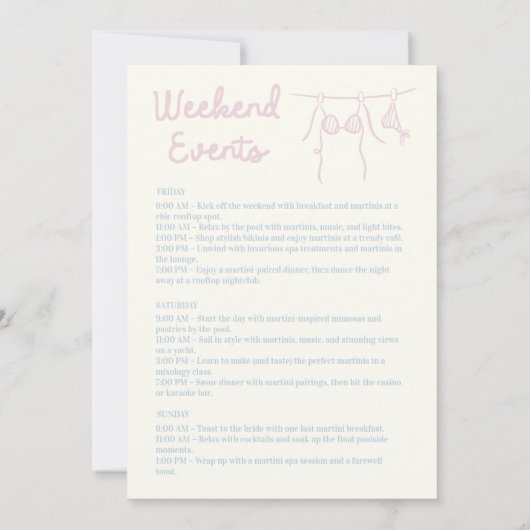 Weekend
Events
FRIDAY
9:00 AM – Kick off the weekend with breakfast and martinis at a
chic rooftop spot.
11:00 AM – Relax by the pool with martinis, music, and light bites.
1:00 PM – Shop stylish bikinis and enjoy martinis at a trendy café.
3:00 PM – Unwind with luxurious spa treatments and martinis in
the lounge.
7:00 PM – Enjoy a martini-paired dinner, then dance the night
away at a rooftop nightclub.
SATURDAY
9:00 AM – Start the day with martini-inspired mimosas and
pastries by the pool.
11:00 AM – Sail in style with martinis, music, and stunning views
on a yacht.
3:00 PM – Learn to make (and taste) the perfect martinis in a
mixology class.
7:00 PM – Savor dinner with martini pairings, then hit the casino
or karaoke bar.
SUNDAY
9:00 AM – Toast to the bride with one last martini breakfast.
11:00 AM – Relax with cocktails and soak up the final poolside
moments.
1:00 PM – Wrap up with a martini spa session and a farewell
toast.